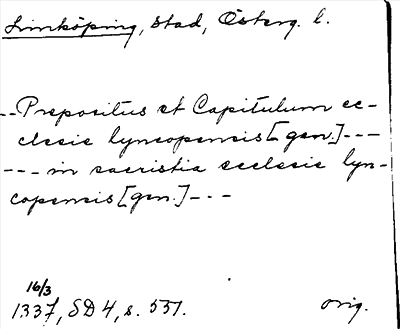 Linköping, stad, Österg. l.
--Prepositus et Capitulum ec-
clesie lyncopensis [gen.]---
--- in sacristia ecclesie lyn-
copensis [gen.]---
16/3
1337, SD 4, s. 551. orig.